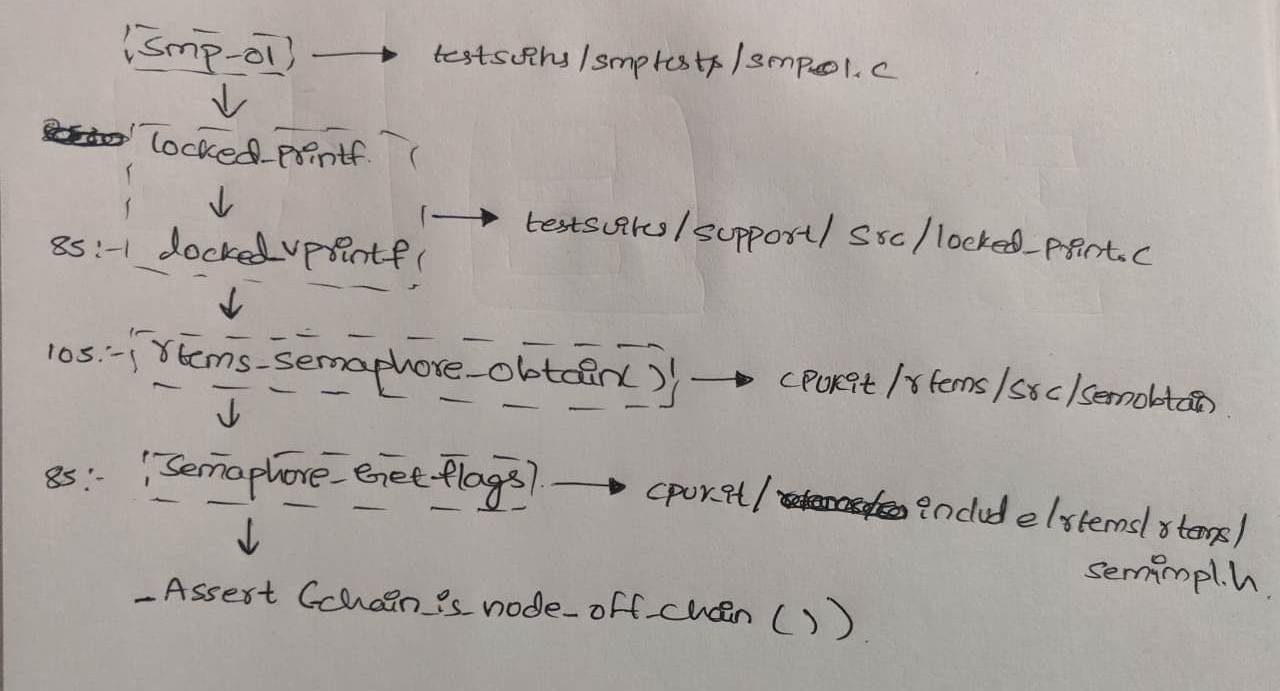 smp-01 → testsuits/smptests/smp01.c
↓
locked_printf.
↓
→ testsuites/support/src/locked_print.c
85:- locked_vprintf
↓
105:- rtems_semaphore_obtain() → cpukit/rtems/src/semobtain.
↓
85:- Semaphore_Get_flags → cpukit/include/rtems/rtems/
semimpl.h.
↓
_Assert (_chain_is_node_off_chain ()).